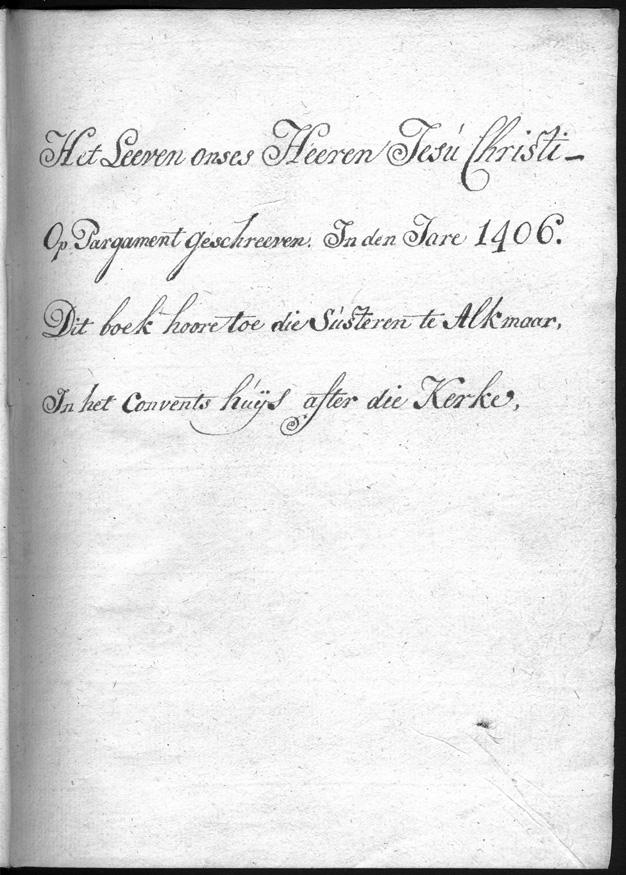 Het Leeven onses Heeren Jesú Christi –
Op Pargament geschreeven. In den Jare 1406.
Dit boek hoore toe die Sústeren te Alkmaar,
In het Convents húÿs after die Kerke,